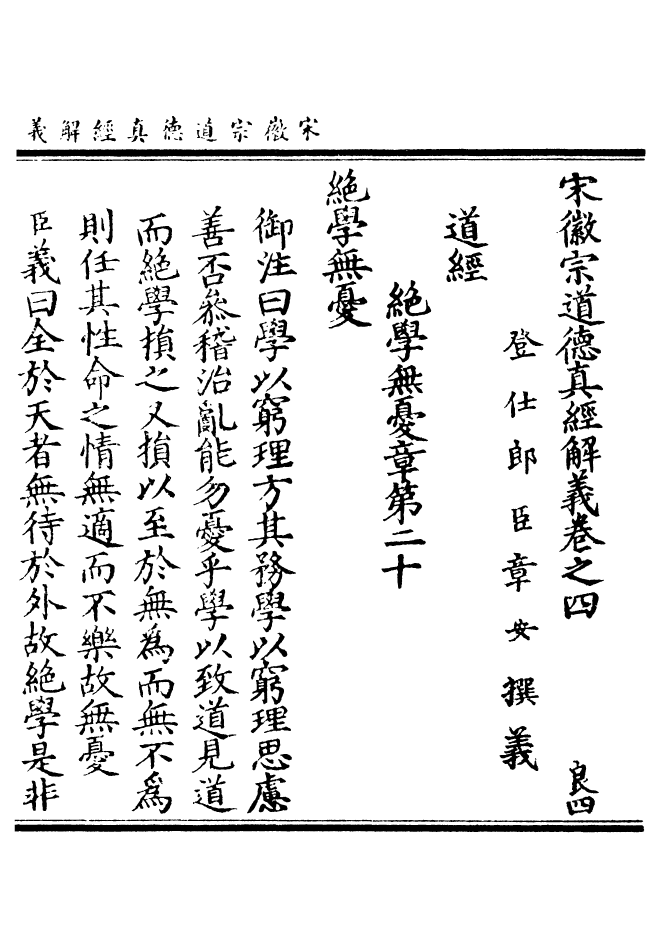 宋徽宗道德真經解義
宋徽宗道德真經解義卷之四
良四
登仕郎臣章安撰義
道經
絶學無憂章第二十
絶學無憂
御注曰學以窮理方其務學以窮理思慮
善否叅稽治亂能勿憂乎學以致道見道
而絶學損之又損以至於無為而無不為
則任其性命之情無適而不樂故無憂
臣義曰全於天者無待於外故絶學是非